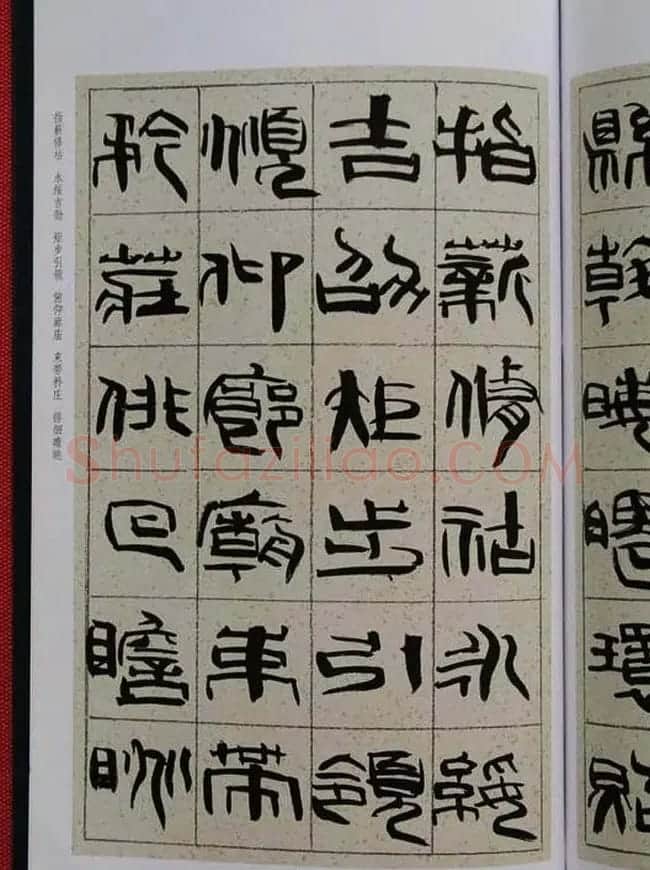 指薪修祜永綏
吉劭矩步引領
頫仰廊廟束帶
矜莊俳回瞻眺
指薪修祜 永绥吉劭 矩步引领 俯仰廊庙 束带矜庄 徘徊瞻眺
Shufaziliao.COM